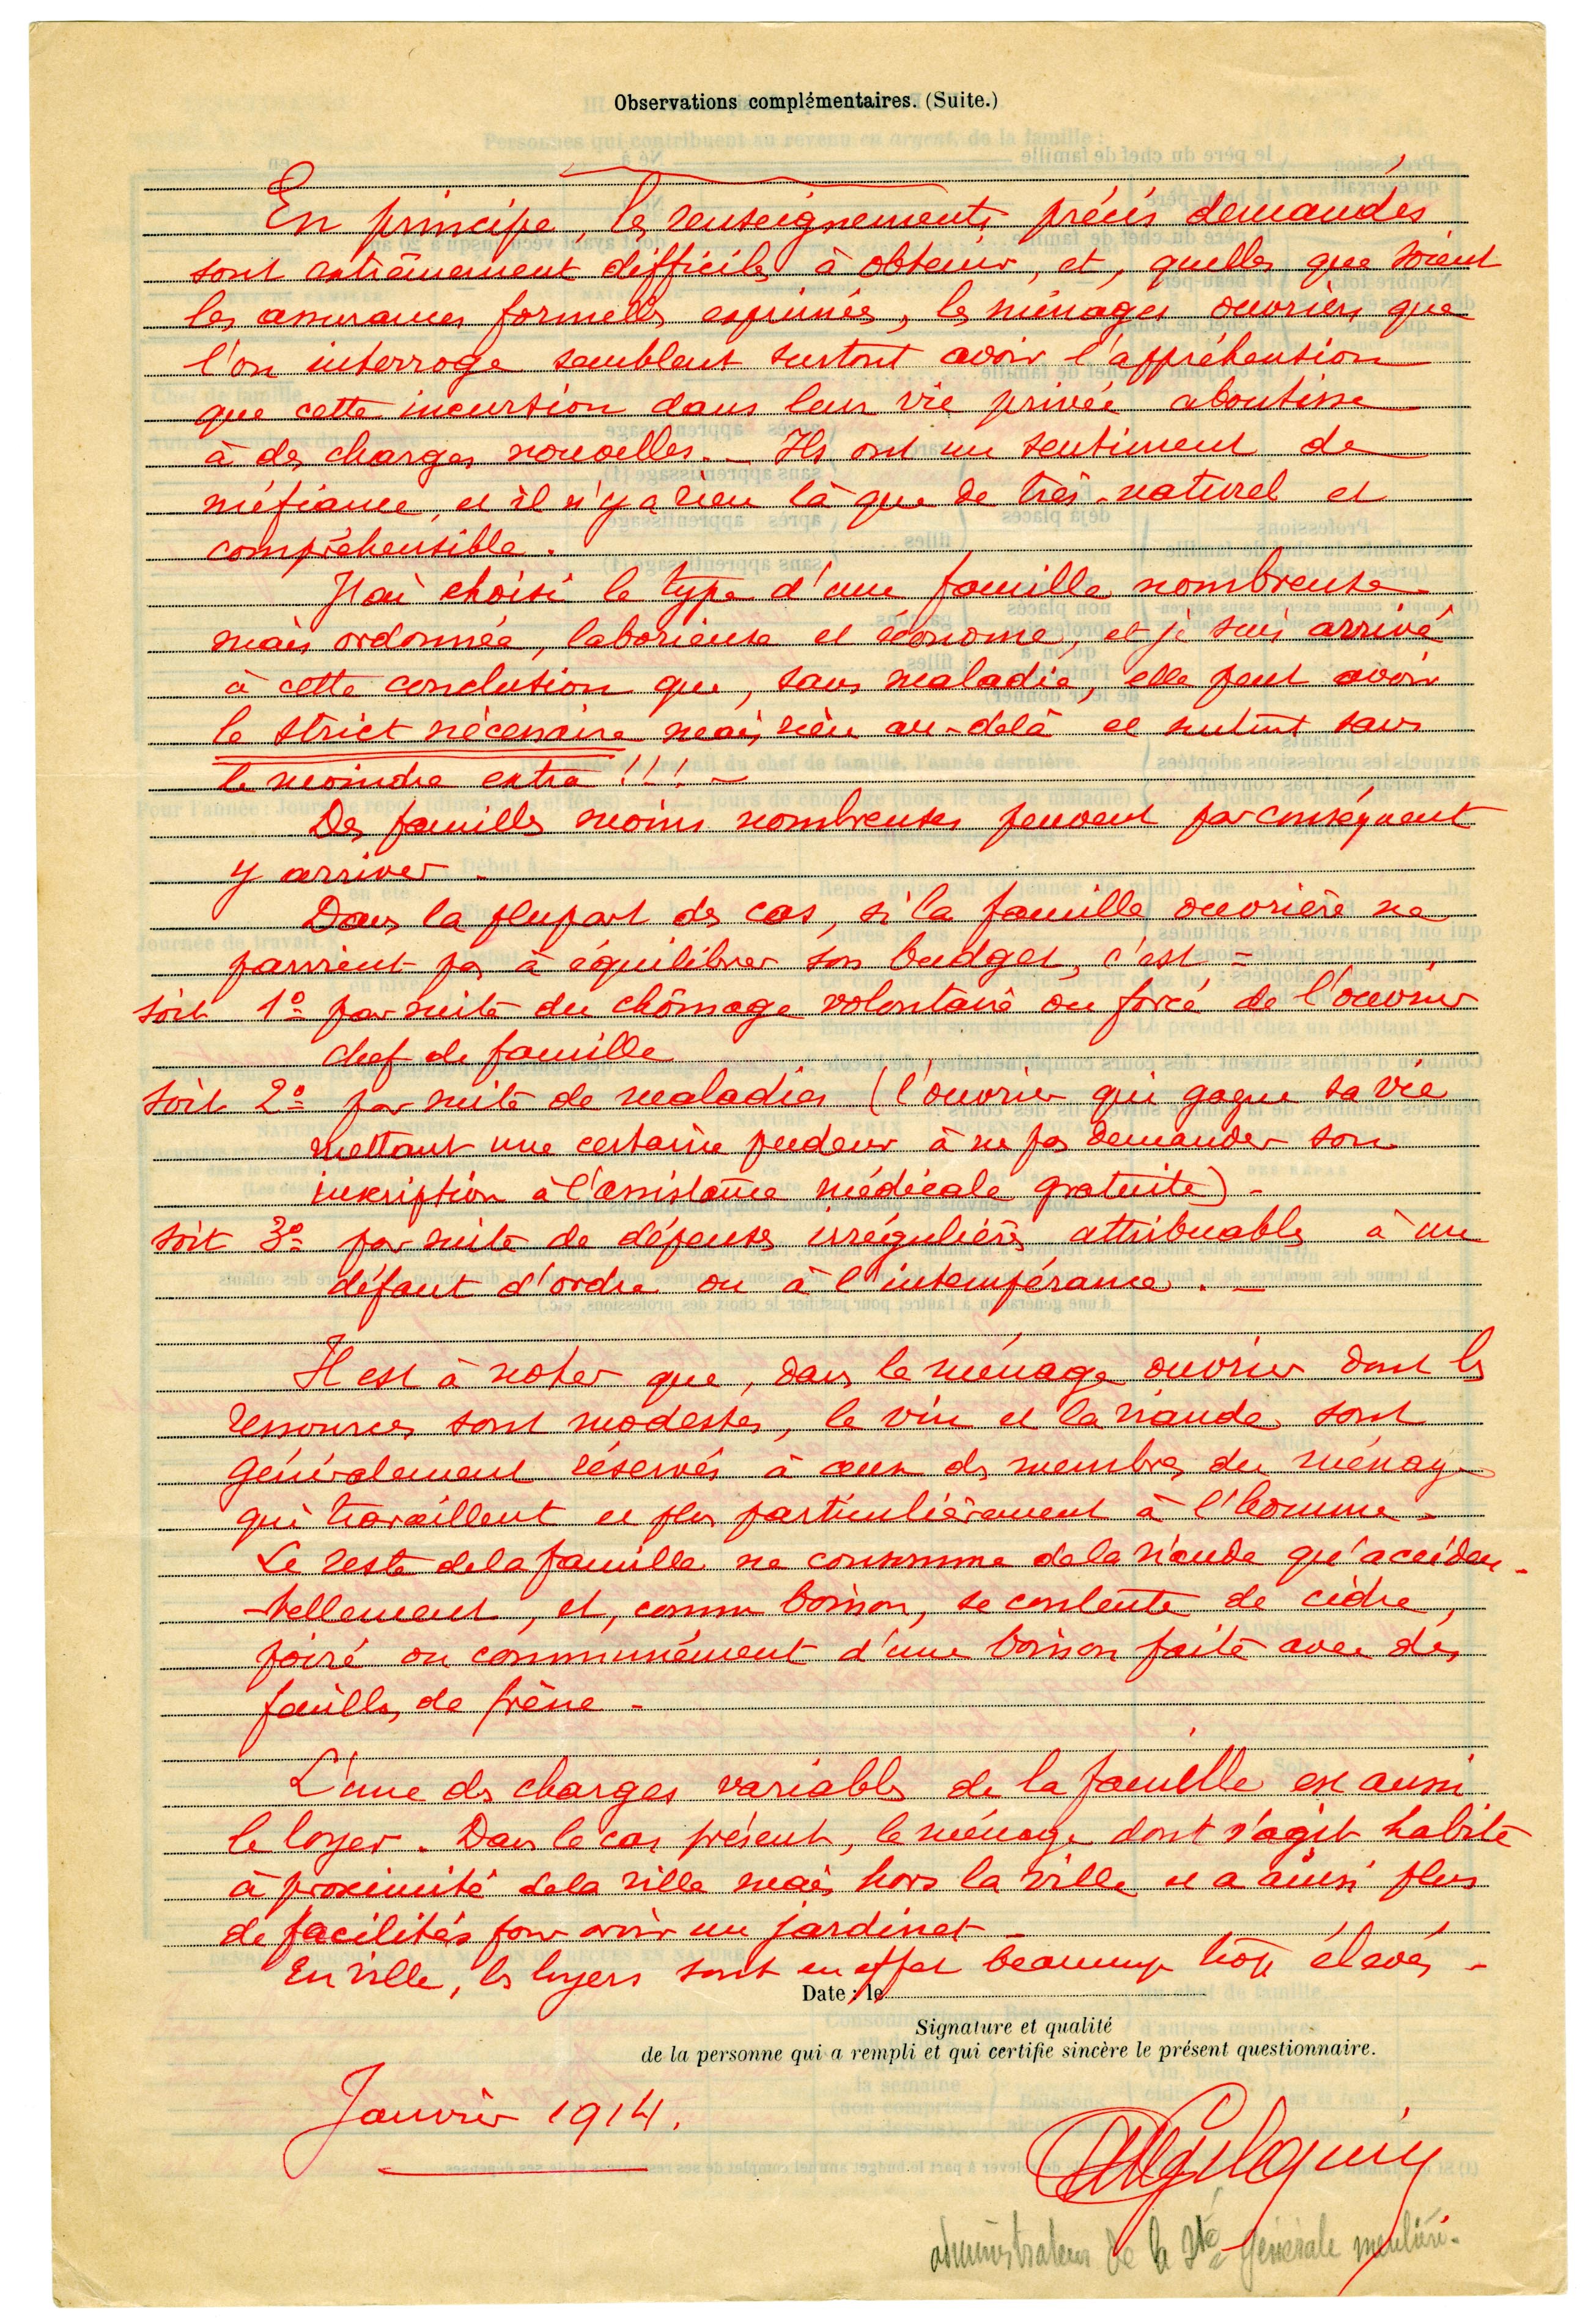 Observations complémentaires. (Suite.)
En principe, les renseignements précis demandés
sont extrêmement difficiles à obtenir, et, quelles que soient
les assurances formelles exprimées, les ménages ouvriers que
l'on interroge semblent surtout avoir l'appréhension
que cette incursion dans leur vie privée aboutisse
à des charges nouvelles. – Ils ont un sentiment de
méfiance, et il n'y a rien là que de très naturel et
compréhensible.
J'ai choisi le type d'une famille nombreuse
mais ordonnée, laborieuse et économe, et je suis arrivé
à cette conclusion que, sans maladie, elle peut avoir
le strict nécessaire mais rien au-delà et surtout sans
le moindre extra !!! –
Des familles moins nombreuses peuvent par conséquent
y arriver.
Dans la plupart des cas, si la famille ouvrière ne
parvient pas à équilibrer son budget, c'est =
soit 1º par suite du chômage volontaire ou forcé de l'ouvrier
chef de famille
soit 2º par suite de maladies (l'ouvrier qui gagne sa vie
mettant une certaine pudeur à ne pas demander son
inscription à l'assistance médicale gratuite) –
soit 3º par suite de dépenses irrégulières attribuables à un
défaut d'ordre ou à l'intempérance. –
Il est à noter que, dans le ménage ouvrier dont les
ressources sont modestes, le vin et la viande sont
généralement réservés à ceux des membres du ménage
qui travaillent et plus particulièrement à l'homme –
Le reste de la famille ne consomme de la viande qu'acciden-
-tellement, et, comme boisson, se contente de cidre,
poiré ou communément d'une boisson faite avec des
feuilles de frêne –
L'une des charges variables de la famille est aussi
le loyer. Dans le cas présent, le ménage dont s'agit habite
à proximité de la ville mais hors la ville et a ainsi plus
de facilités pour avoir un jardinet –
En ville, les loyers sont en effet beaucoup trop élevés –
Date : le
Signature et qualité
de la personne qui a rempli et qui certifie sincère le présent questionnaire.
Janvier 1914.
administrateur de la Sté générale meulière.